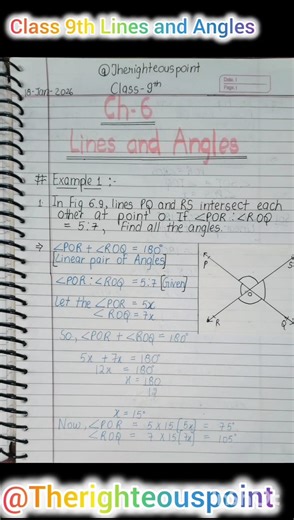 Class 9th Lines and Angles
@Therighteouspoint
18-Jan-2026
Class-9th
Ch-6
Lines and Angles
# Example 1 :-
1 In Fig 6.9, lines PQ and RS intersect each
other at point O. If ∠POR : ∠ROQ
= 5:7, Find all the angles.
⇒ ∠POR + ∠ROQ = 180°
[Linear pair of Angles]
∠POR : ∠ROQ = 5:7 [Given]
Let the ∠POR = 5x
∠ROQ = 7x
So, ∠POR + ∠ROQ = 180°
5x + 7x = 180°
12x = 180°
x = 180
12
x = 15°
Now, ∠POR = 5 x 15 [5x] = 75°
∠ROQ = 7 x 15 [7x] = 105°
P
S
O
R
Q
@Therighteouspoint